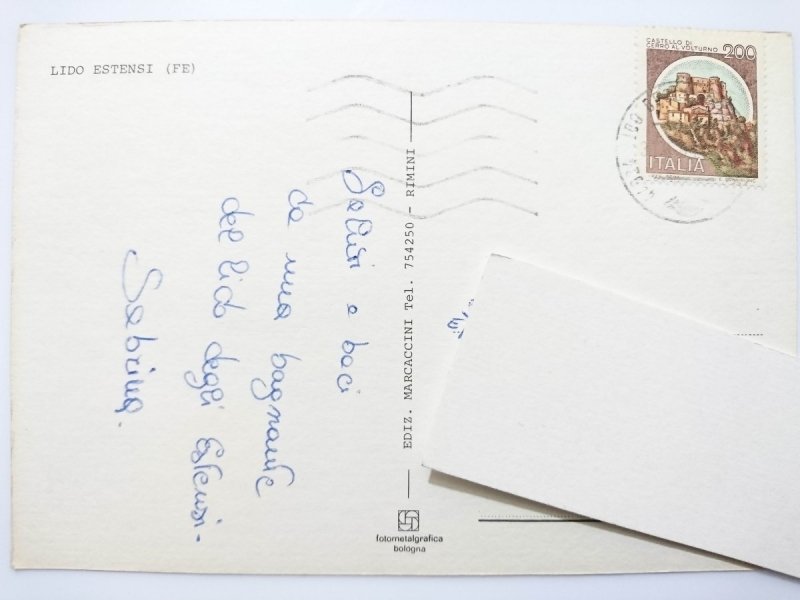 LIDO ESTENSI (FE)
Saluti e baci
da una bagnante
del lido degli Estensi.
Sabrina.
EDIZ. MARCACCINI Tel. 754250 - RIMINI
fotometalgrafica
bologna
CASTELLO DI
CERRO AL VOLTURNO
200
ITALIA